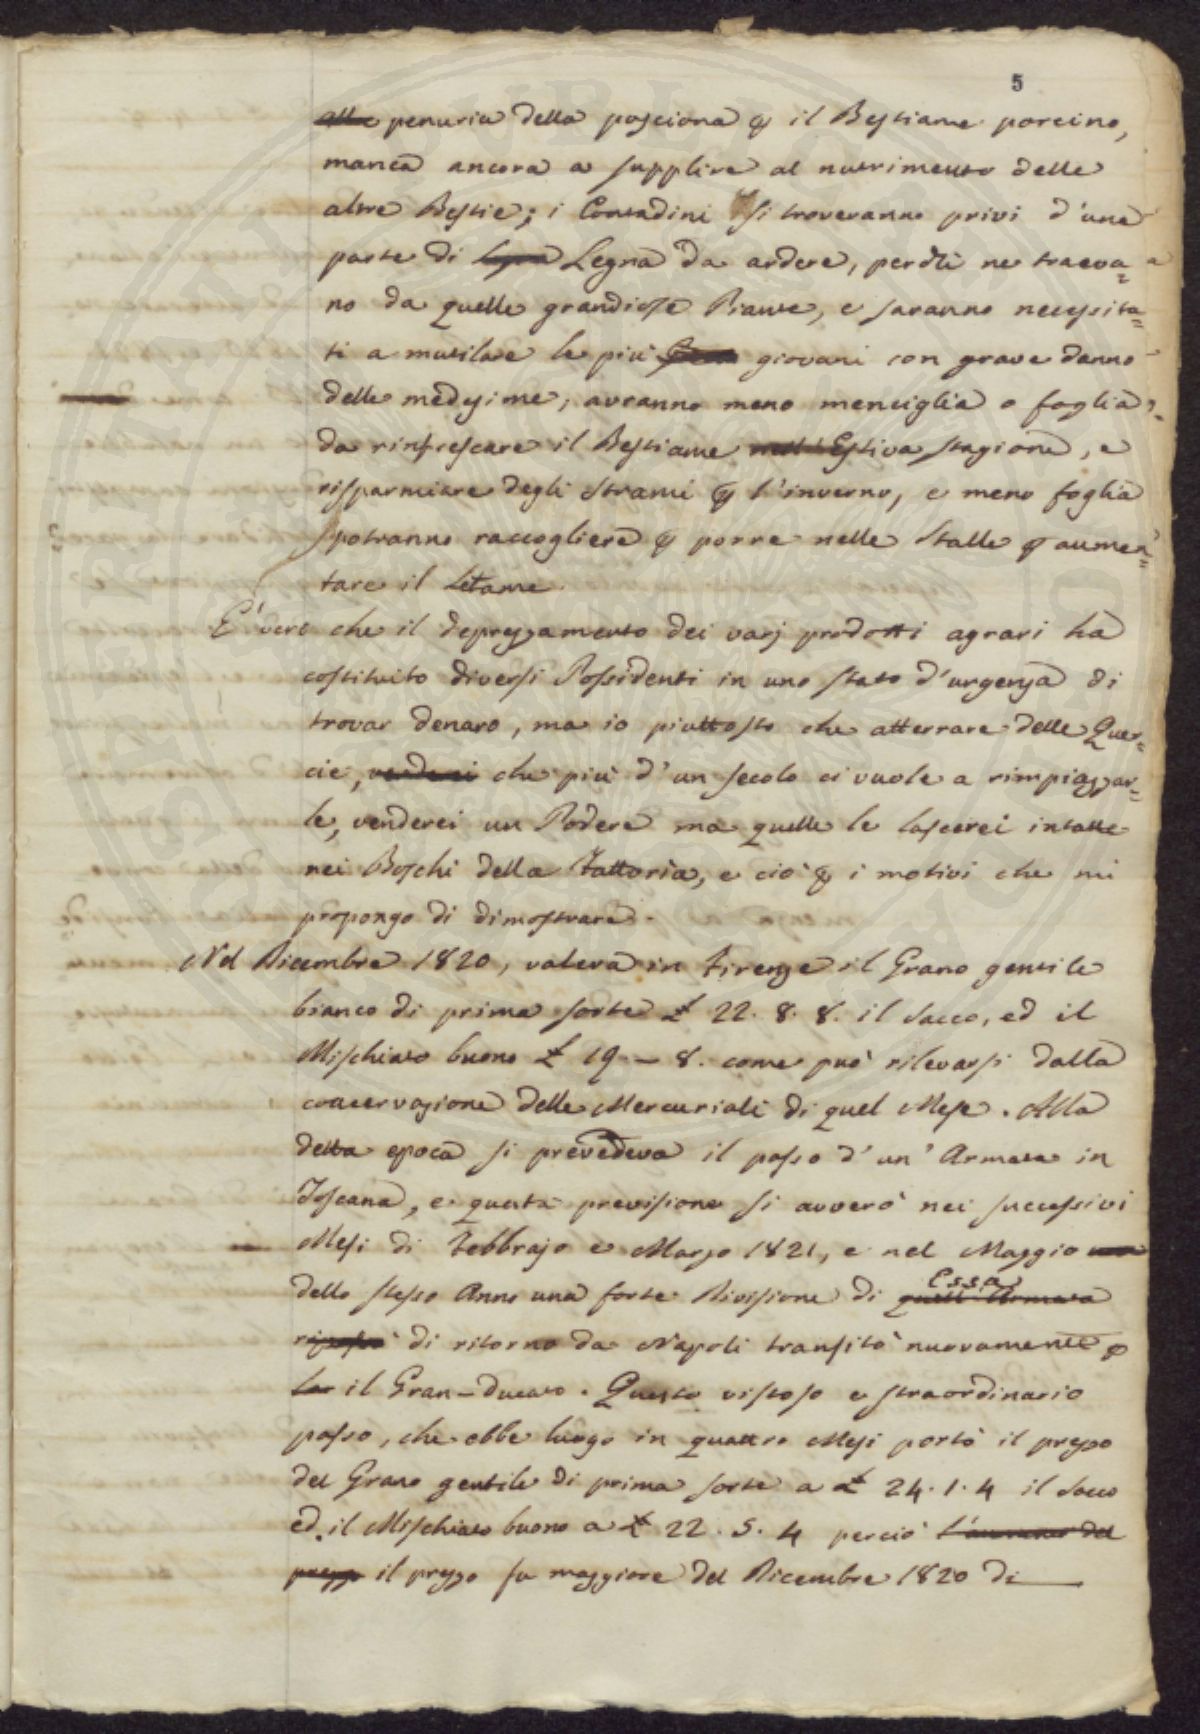 5
alla penuria della pasciona p il Bestiame porcino,
manca ancora a supplire al nutrimento delle
altre Bestie; i Contadini si troveranno privi d'una
parte di Legna Legna da ardere, perchè ne traeva=
no da quelle grandiose Piante, e saranno necessita=
ti a mutilare le più giovani con grave danno
delle medesime; avranno meno menciglia o foglia,
da rinfrescare il Bestiame nell'Estiva stagione, e
risparmiare degli strami p l'inverno, e meno foglia
potranno raccogliere p porre nelle Stalle p aumen=
tare il letame.
E' vero che il deprezzamento dei varj prodotti agrari ha
costituito diversi Possidenti in uno stato d'urgenza di
trovar denaro, ma io piuttosto che atterrare delle Quer=
cie, venderei che più d'un secolo ci vuole a rimpiazzar=
le, venderei un Podere ma quelle le lascerei intatte
nei Boschi della Fattoria, e ciò p i motivi che mi
propongo di dimostrare.
Nel Dicembre 1820, valeva in Firenze il Grano gentile
bianco di prima sorte £ 22. 8. 8. il Sacco, ed il
Mischiato buono £ 19 - 8. come può rilevarsi dalla
coacervazione delle Mercuriali di quel Mese. Alla
detta epoca si prevedeva il passo d'un' Armata in
Toscana, e questa previsione si avverò nei successivi
Mesi di Febbrajo e Marzo 1821, e nel Maggio
dello stesso Anno una forte Divisione di quell'Armata
Essa
ripassò di ritorno da Napoli transitò nuovamente p
il Gran-ducato. Questo vistoso e straordinario
passo, che ebbe luogo in quattro Mesi portò il prezzo
del Grano gentile di prima sorte a £ 24. 1. 4 il Sacco
ed il Mischiato buono a £ 22. 5. 4 perciò l'aumento del
prezzo il prezzo fu maggiore del Dicembre 1820 di